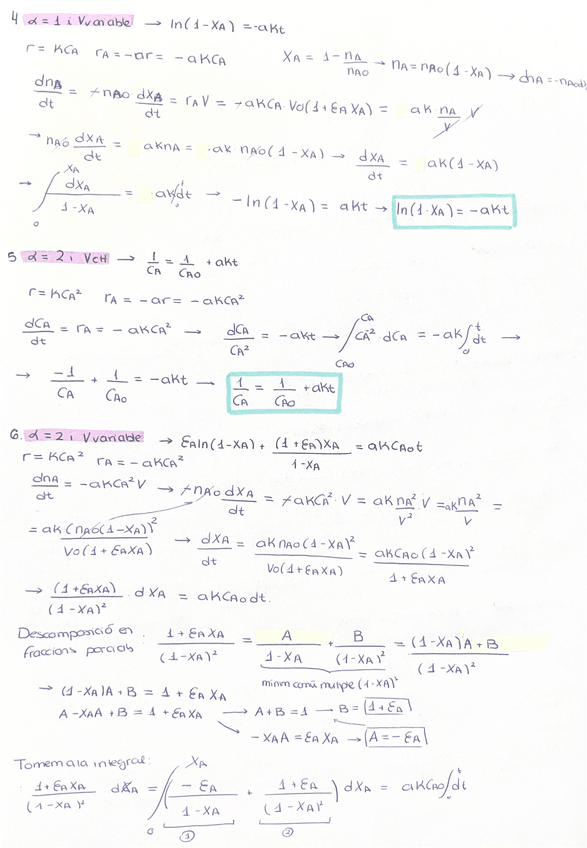 4 α = 1 i Vvariable → ln(1-XA) = -aKt
r = KCA rA = -ar = -aKCA XA = 1 - nA/nAO → nA = nAO(1-XA) → dnA = -nAOd
dnA/dt = -nAO dXA/dt = rAV = -aKCA·VO(1+εAXA) = aK nA/V V
→ nAO dXA/dt = aKnA = ·aK nAO(1-XA) → dXA/dt = aK(1-XA)
→ ∫0^XA dXA/(1-XA) = aK∫0^t dt → -ln(1-XA) = aKt → ln(1-XA) = -aKt
5 α = 2 i Vct → 1/CA = 1/CAO + aKt
r = KCA² rA = -ar = -aKCA²
dCA/dt = rA = -aKCA² → dCA/CA² = -aKt → ∫CAO^CA CA^-2 dCA = -aK∫0^t dt →
→ -1/CA + 1/CAO = -aKt → 1/CA = 1/CAO + aKt
6. α = 2 i Vvariable → εAln(1-XA) + (1+εA)XA/(1-XA) = aKCAOt
r = KCA² rA = -aKCA²
dnA/dt = -aKCA²V → -nAO dXA/dt = -aKCA²·V = aK nA²/V² V = aK nA²/V =
= aK(nAO(1-XA))²/VO(1+εAXA) → dXA/dt = aKnAO(1-XA)²/VO(1+εAXA) = aKCAO(1-XA)²/1+εAXA
→ (1+εAXA)/(1-XA)² dXA = aKCAOdt.
Descomposició en fraccions parcials : 1+εAXA/(1-XA)² = A/1-XA + B/(1-XA)² = (1-XA)A+B/(1-XA)²
mínim comú múltiple (1-XA)²
→ (1-XA)A+B = 1+εAXA
A-XAA+B = 1+εAXA → A+B = 1 → B = 1+εA
-XAA = εAXA → A = -εA
Tornem a la integral:
1+εAXA/(1-XA)² dXA = ∫0^XA (-εA/1-XA + 1+εA/(1-XA)²) dXA = aKCAO∫0^t dt
① ②